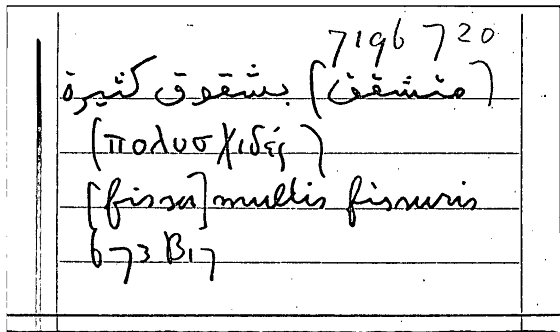 7196 720
(متشقق) بشقوق كثيرة
(πολυσχιδές)
[fissa] multis fissuris
673 B17